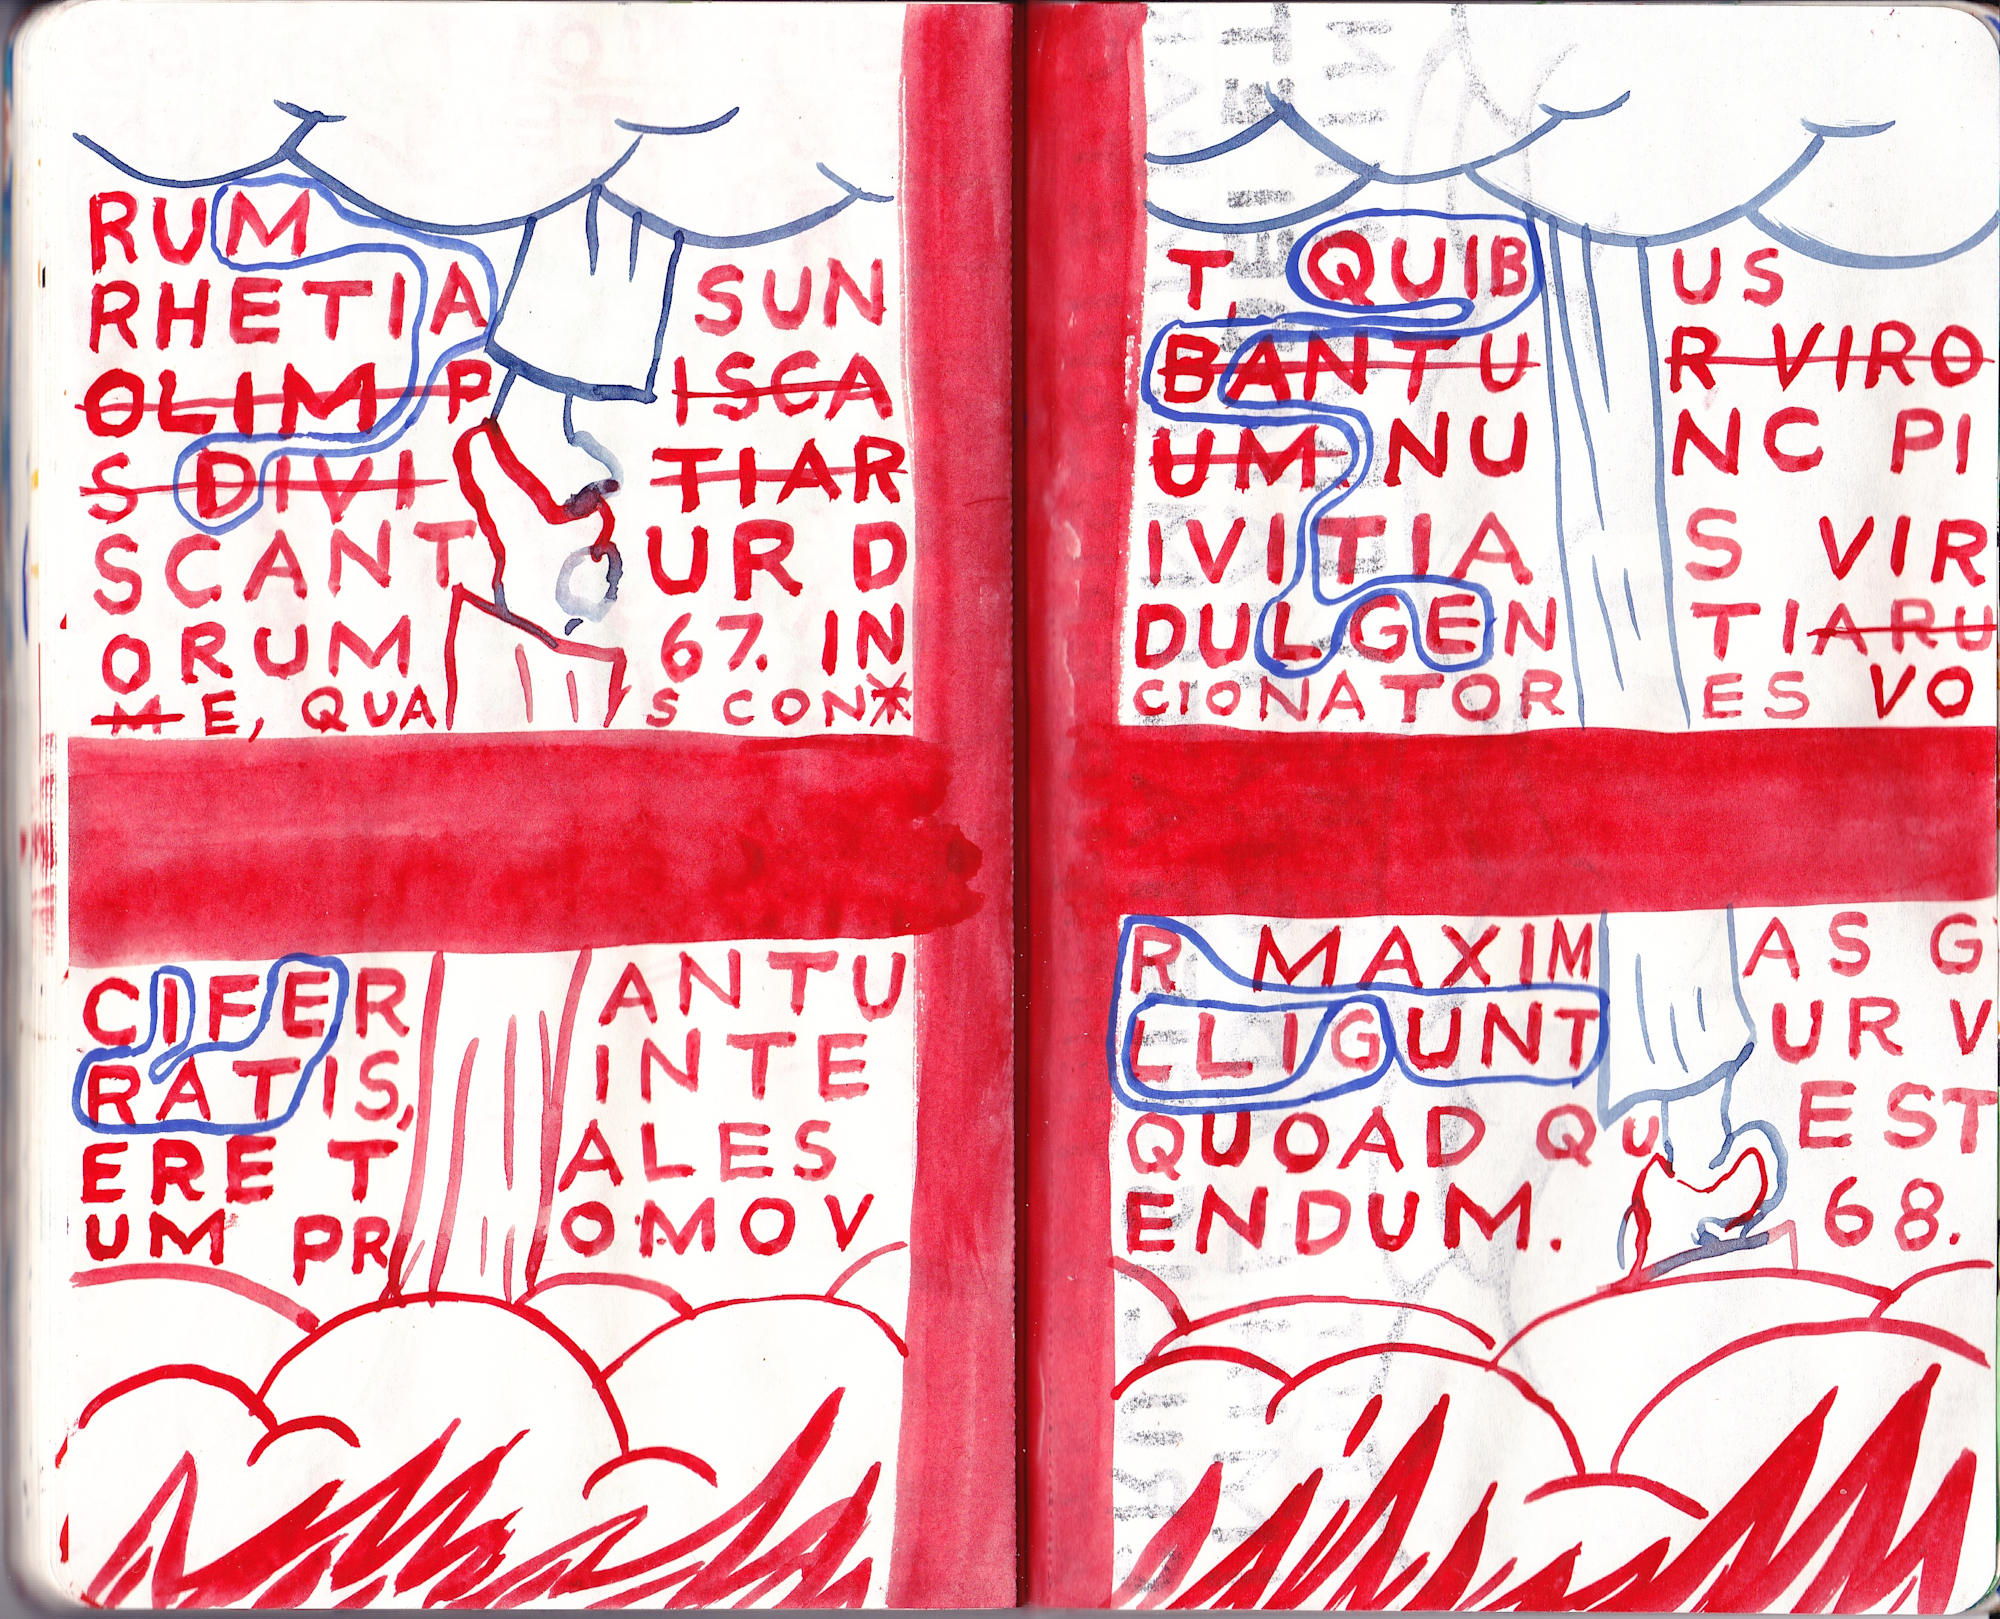 RUM
RHETIA SUN
OLIM P ISCA
S DIVI TIAR
SCANT UR D
ORUM 67. IN
M E, QUA S CON
CIFER ANTU
RATIS, INTE
ERE T ALES
UM PR OMOV
T, QUIB US
BANTU R VIRO
UM. NU NC PI
IVITIA S VIR
DULGEN TIARU
CIONATOR ES VO
R MAXIM AS G
LLIGUNT UR V
QUOAD QU EST
ENDUM. 68.